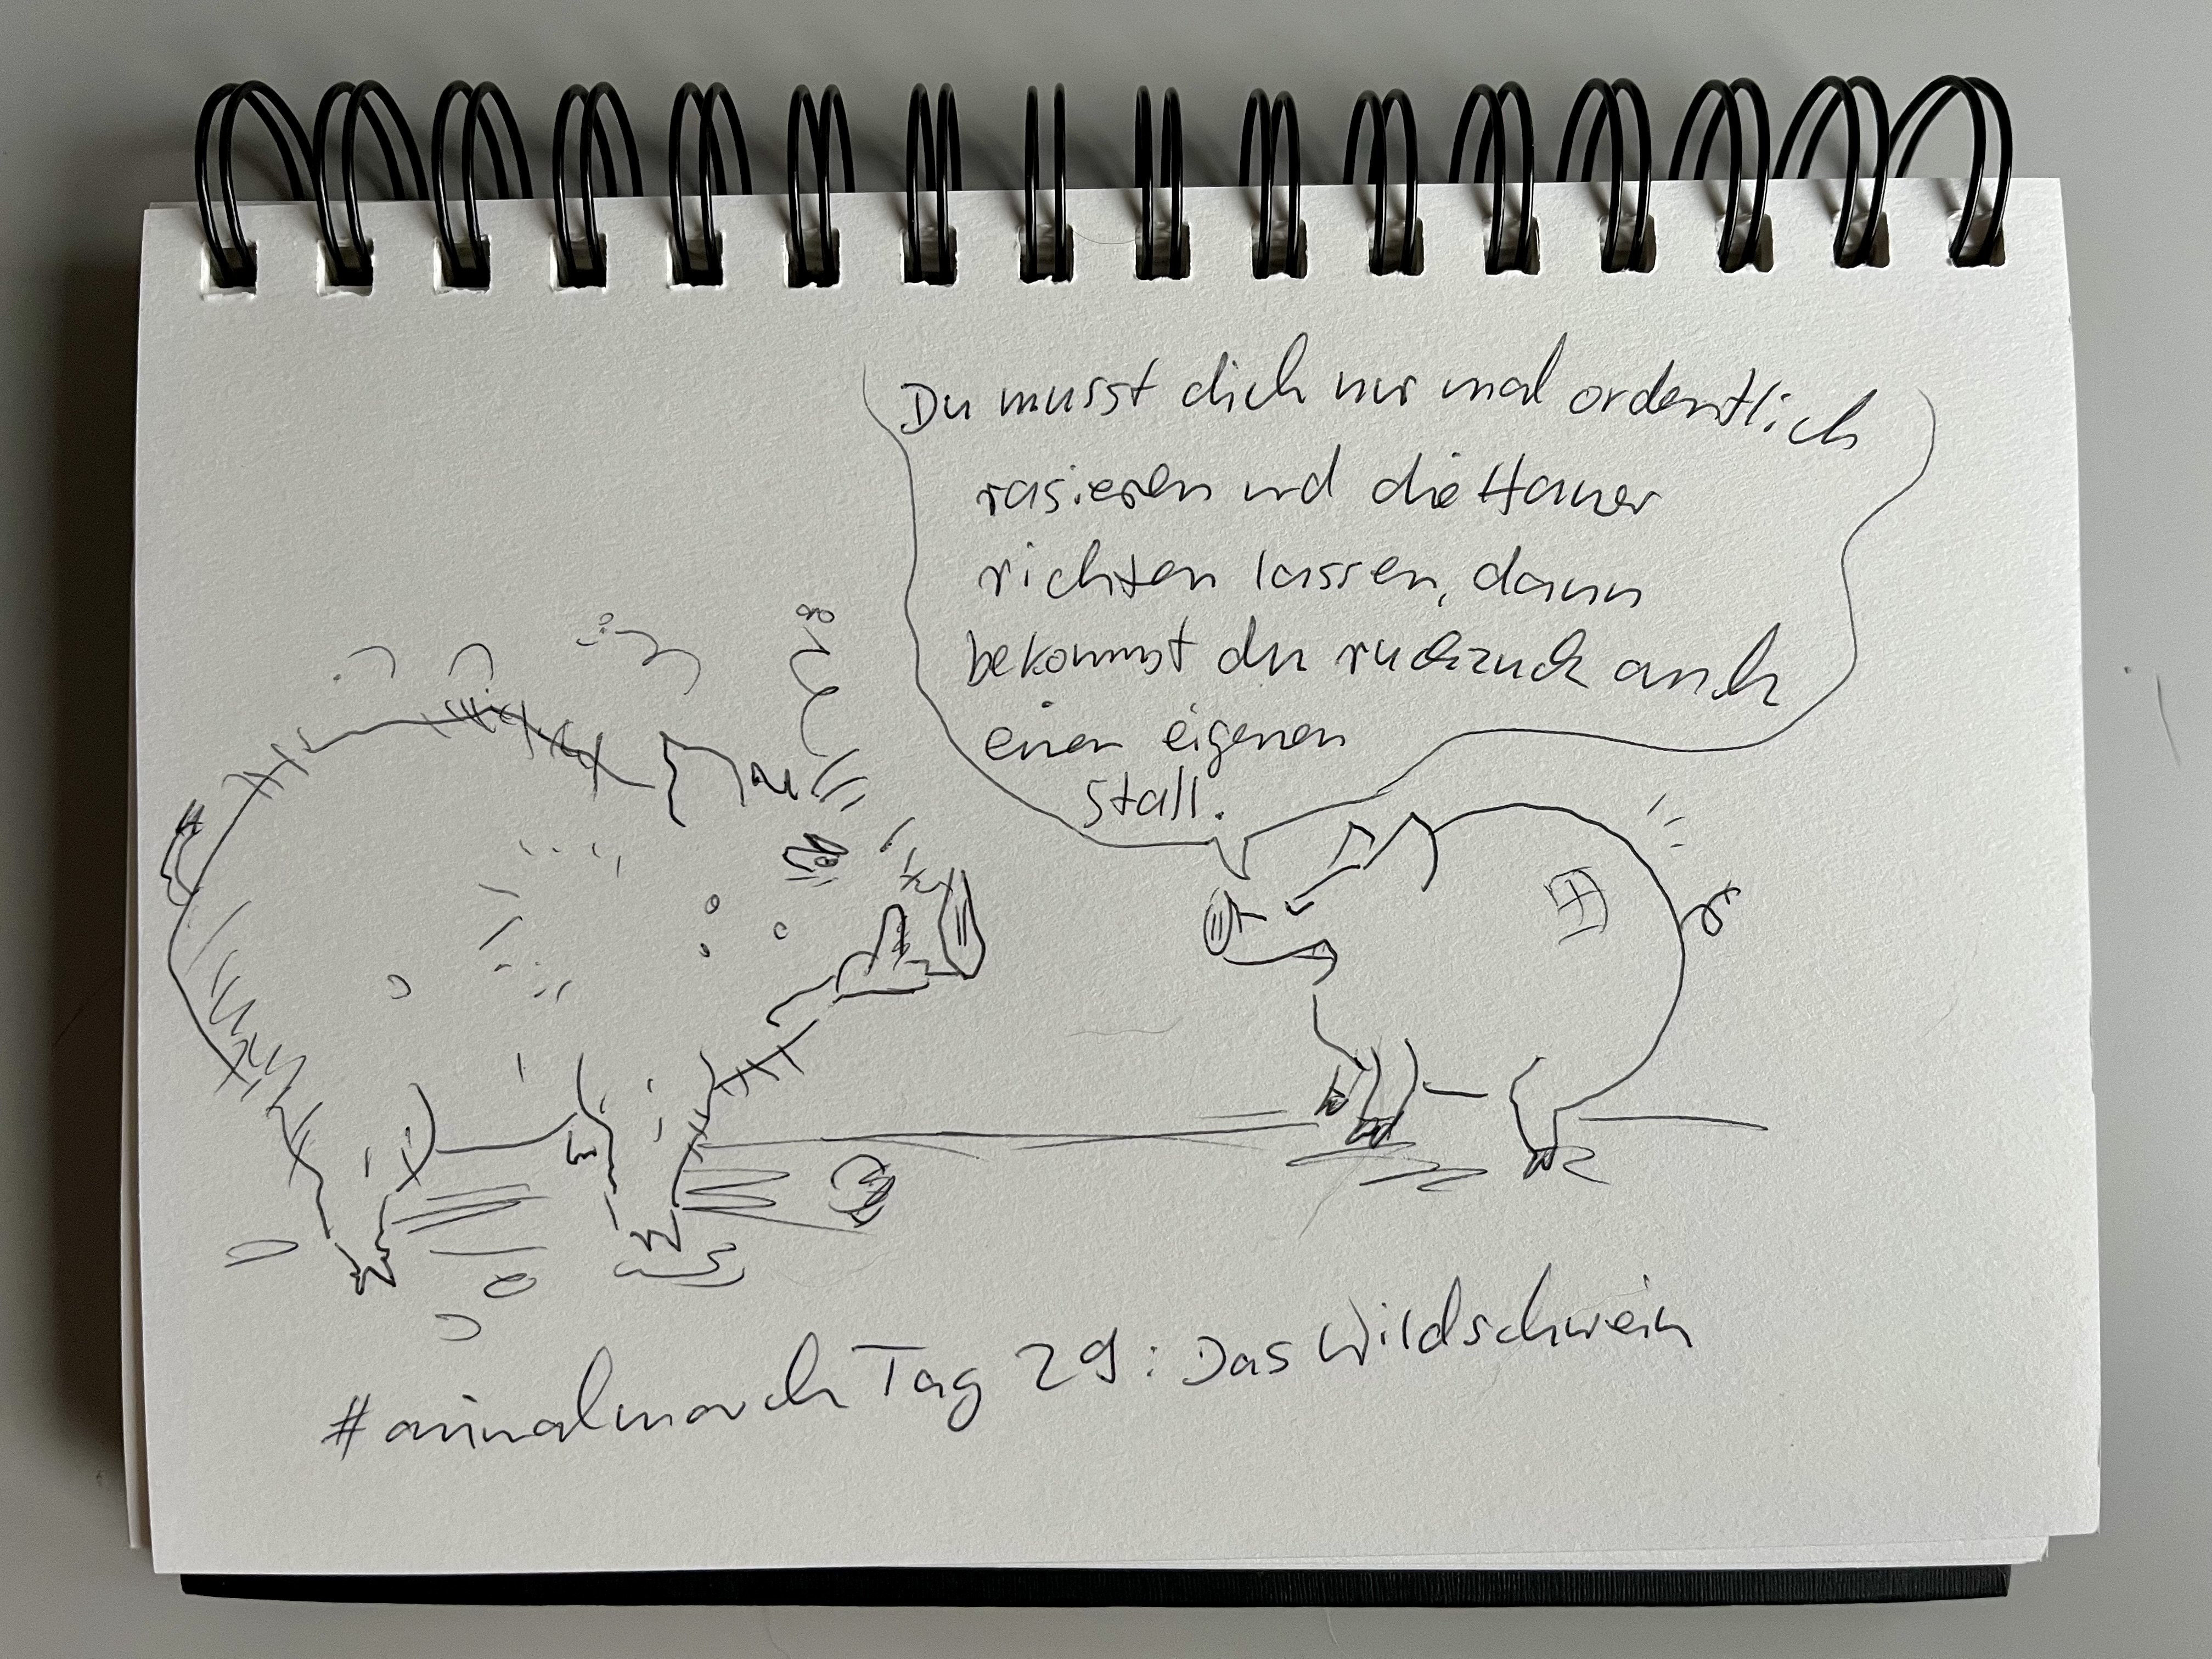 Du musst dich nur mal ordentlich
rasieren und die Hauer
richten lassen, dann
bekommst du ruckzuck auch
einen eigenen
Stall.
#animalmarch Tag 29: Das Wildschwein